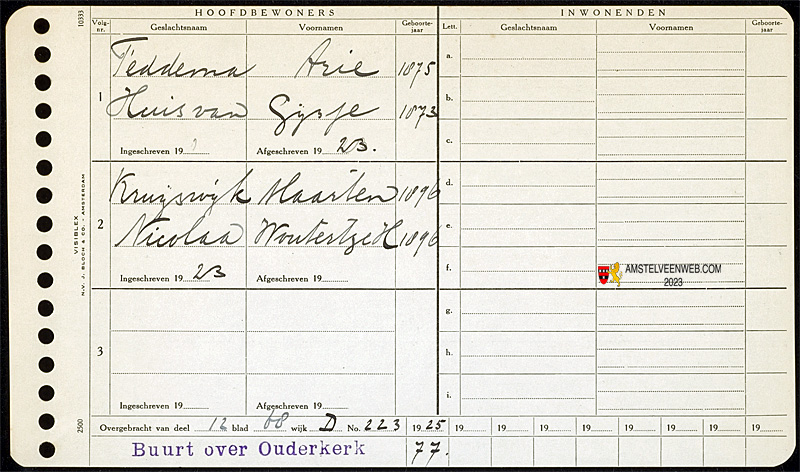 HOOFDBEWONERS INWONENDEN
Volg-nr. Geslachtsnaam Voornamen Geboorte-jaar Lett. Geslachtsnaam Voornamen Geboorte-jaar
1
Teddema Arie 1875
Huis van Gijsje 1873
Ingeschreven 19 Afgeschreven 19 23.
2
Kruijswijk Maarten 1896
Nicolaa Woutertje H 1896
Ingeschreven 19 23 Afgeschreven 19
3
Ingeschreven 19 Afgeschreven 19
a.
b.
c.
d.
e.
f.
g.
h.
i.
AMSTELVEENWEB.COM
2023
Overgebracht van deel 12 blad 68 wijk D No. 223 1925 19 19 19 19 19 19 19 19
Buurt over Ouderkerk 77.
10333
VISIBLEX
N.V. J. BLOCH & CO. AMSTERDAM
2500